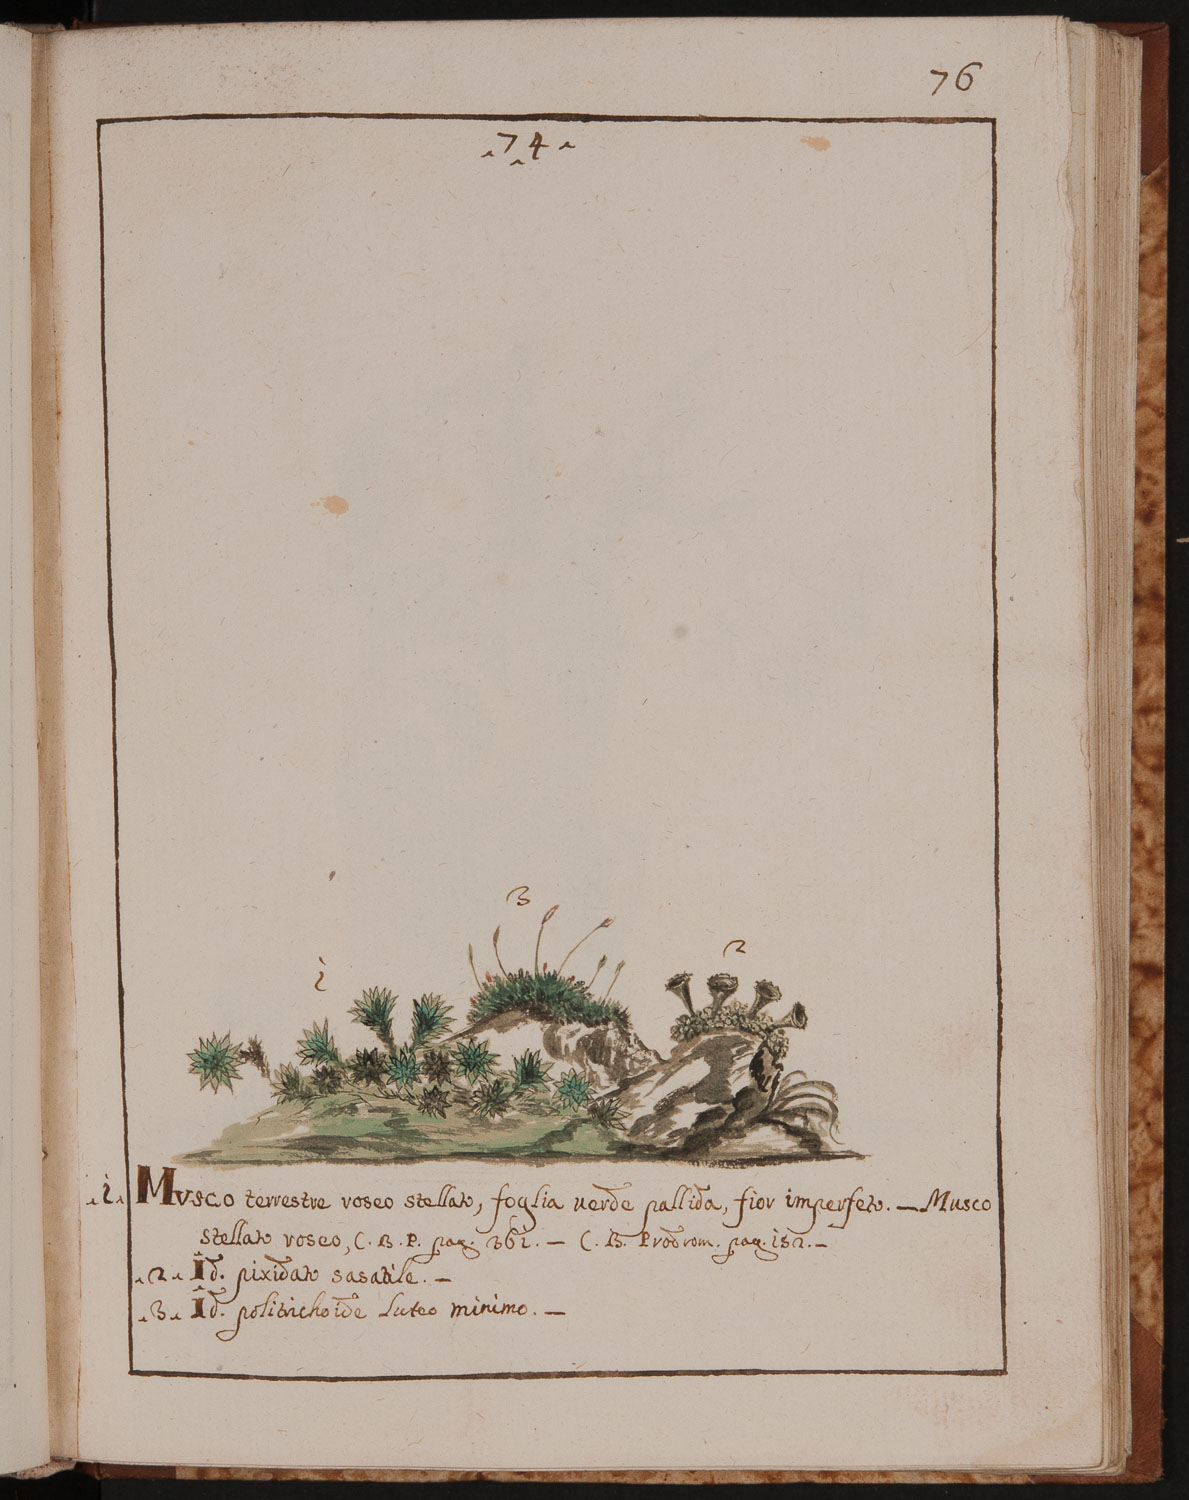 76
74
3
2
1
1. Musco terrestre roseo stellato, foglia uerde pallida, fior imperfeto. — Musco
stellato roseo, C. B. P. pag. 361. — C. B. Prodrom. pag. 152. —
2. Id. pixidato sasatile. —
3. Id. politrichoide luteo minimo. —